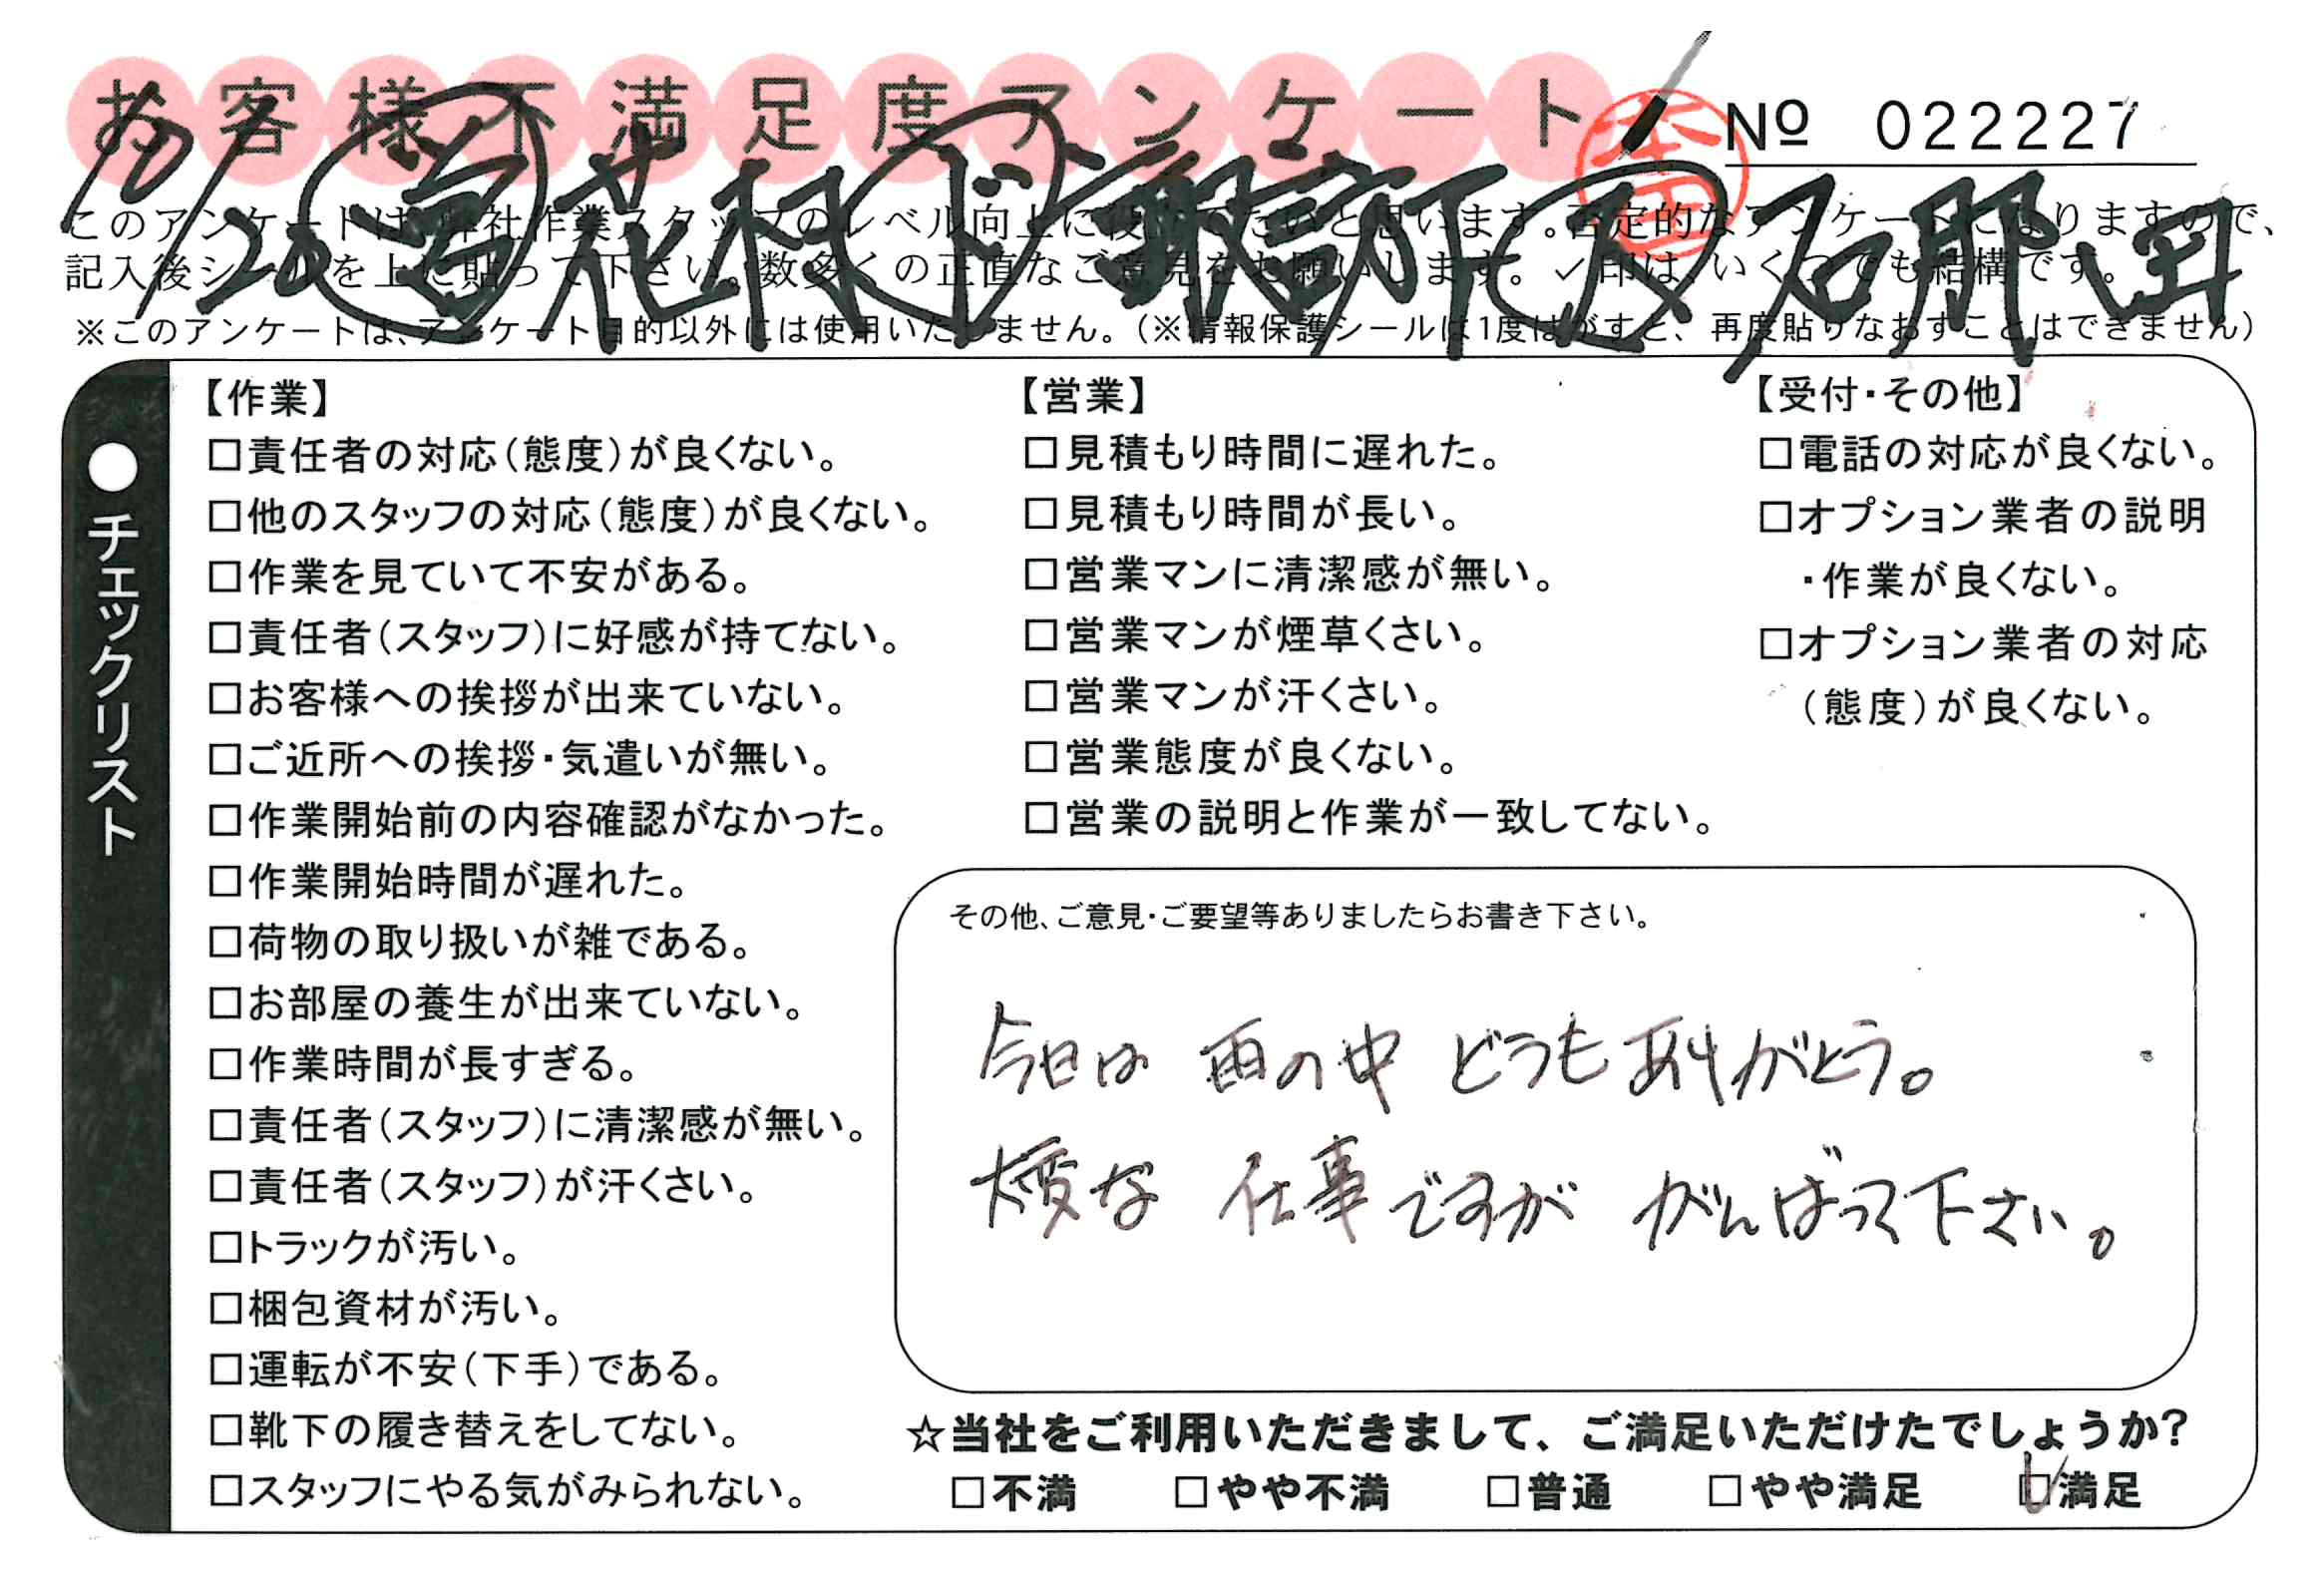 お客様不満足度アンケート
№ 022227
10/20
このアンケートは、弊社作業スタッフのレベル向上に役立てたいと思います。否定的なアンケートになりますので、
記入後シールを上に貼って下さい。数多くの正直なご意見をお願いします。✓印は、いくつでも結構です。
※このアンケートは、アンケート目的以外には使用いたしません。（※情報保護シールは1度はがすと、再度貼りなおすことはできません）
●チェックリスト
【作業】
□責任者の対応（態度）が良くない。
□他のスタッフの対応（態度）が良くない。
□作業を見ていて不安がある。
□責任者（スタッフ）に好感が持てない。
□お客様への挨拶が出来ていない。
□ご近所への挨拶・気遣いが無い。
□作業開始前の内容確認がなかった。
□作業開始時間が遅れた。
□荷物の取り扱いが雑である。
□お部屋の養生が出来ていない。
□作業時間が長すぎる。
□責任者（スタッフ）に清潔感が無い。
□責任者（スタッフ）が汗くさい。
□トラックが汚い。
□梱包資材が汚い。
□運転が不安（下手）である。
□靴下の履き替えをしてない。
□スタッフにやる気がみられない。
【営業】
□見積もり時間に遅れた。
□見積もり時間が長い。
□営業マンに清潔感が無い。
□営業マンが煙草くさい。
□営業マンが汗くさい。
□営業態度が良くない。
□営業の説明と作業が一致してない。
【受付・その他】
□電話の対応が良くない。
□オプション業者の説明
・作業が良くない。
□オプション業者の対応
（態度）が良くない。
その他、ご意見・ご要望等ありましたらお書き下さい。
今日は 雨の中 どうもありがとう。
大変な 仕事ですが がんばって下さい。
☆当社をご利用いただきまして、ご満足いただけたでしょうか?
□不満 □やや不満 □普通 □やや満足 ☑満足